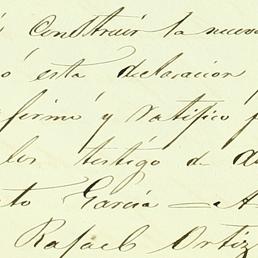 construir la neces
ó esta declaracion
firmó y ratifico
los testigo de
to Garcia — A
Rafael Ortiz